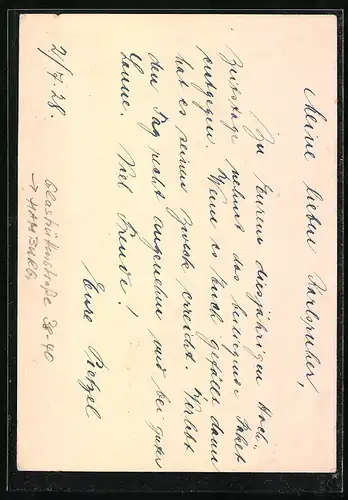 Meine lieben Karlsruher,
Zu Eurem diesjährigen Hoch-
zeitstage nehmt das beiliegende Paket
entgegen. Wenn es Euch gefällt dann
hat es seinen Zweck erreicht. Verlebt
den Tag recht angenehm und bei guter
Laune. Viel Freude!
Eure Pretzel
21/7.28.
Glashüttenstraße 38-40
→ HAMBURG